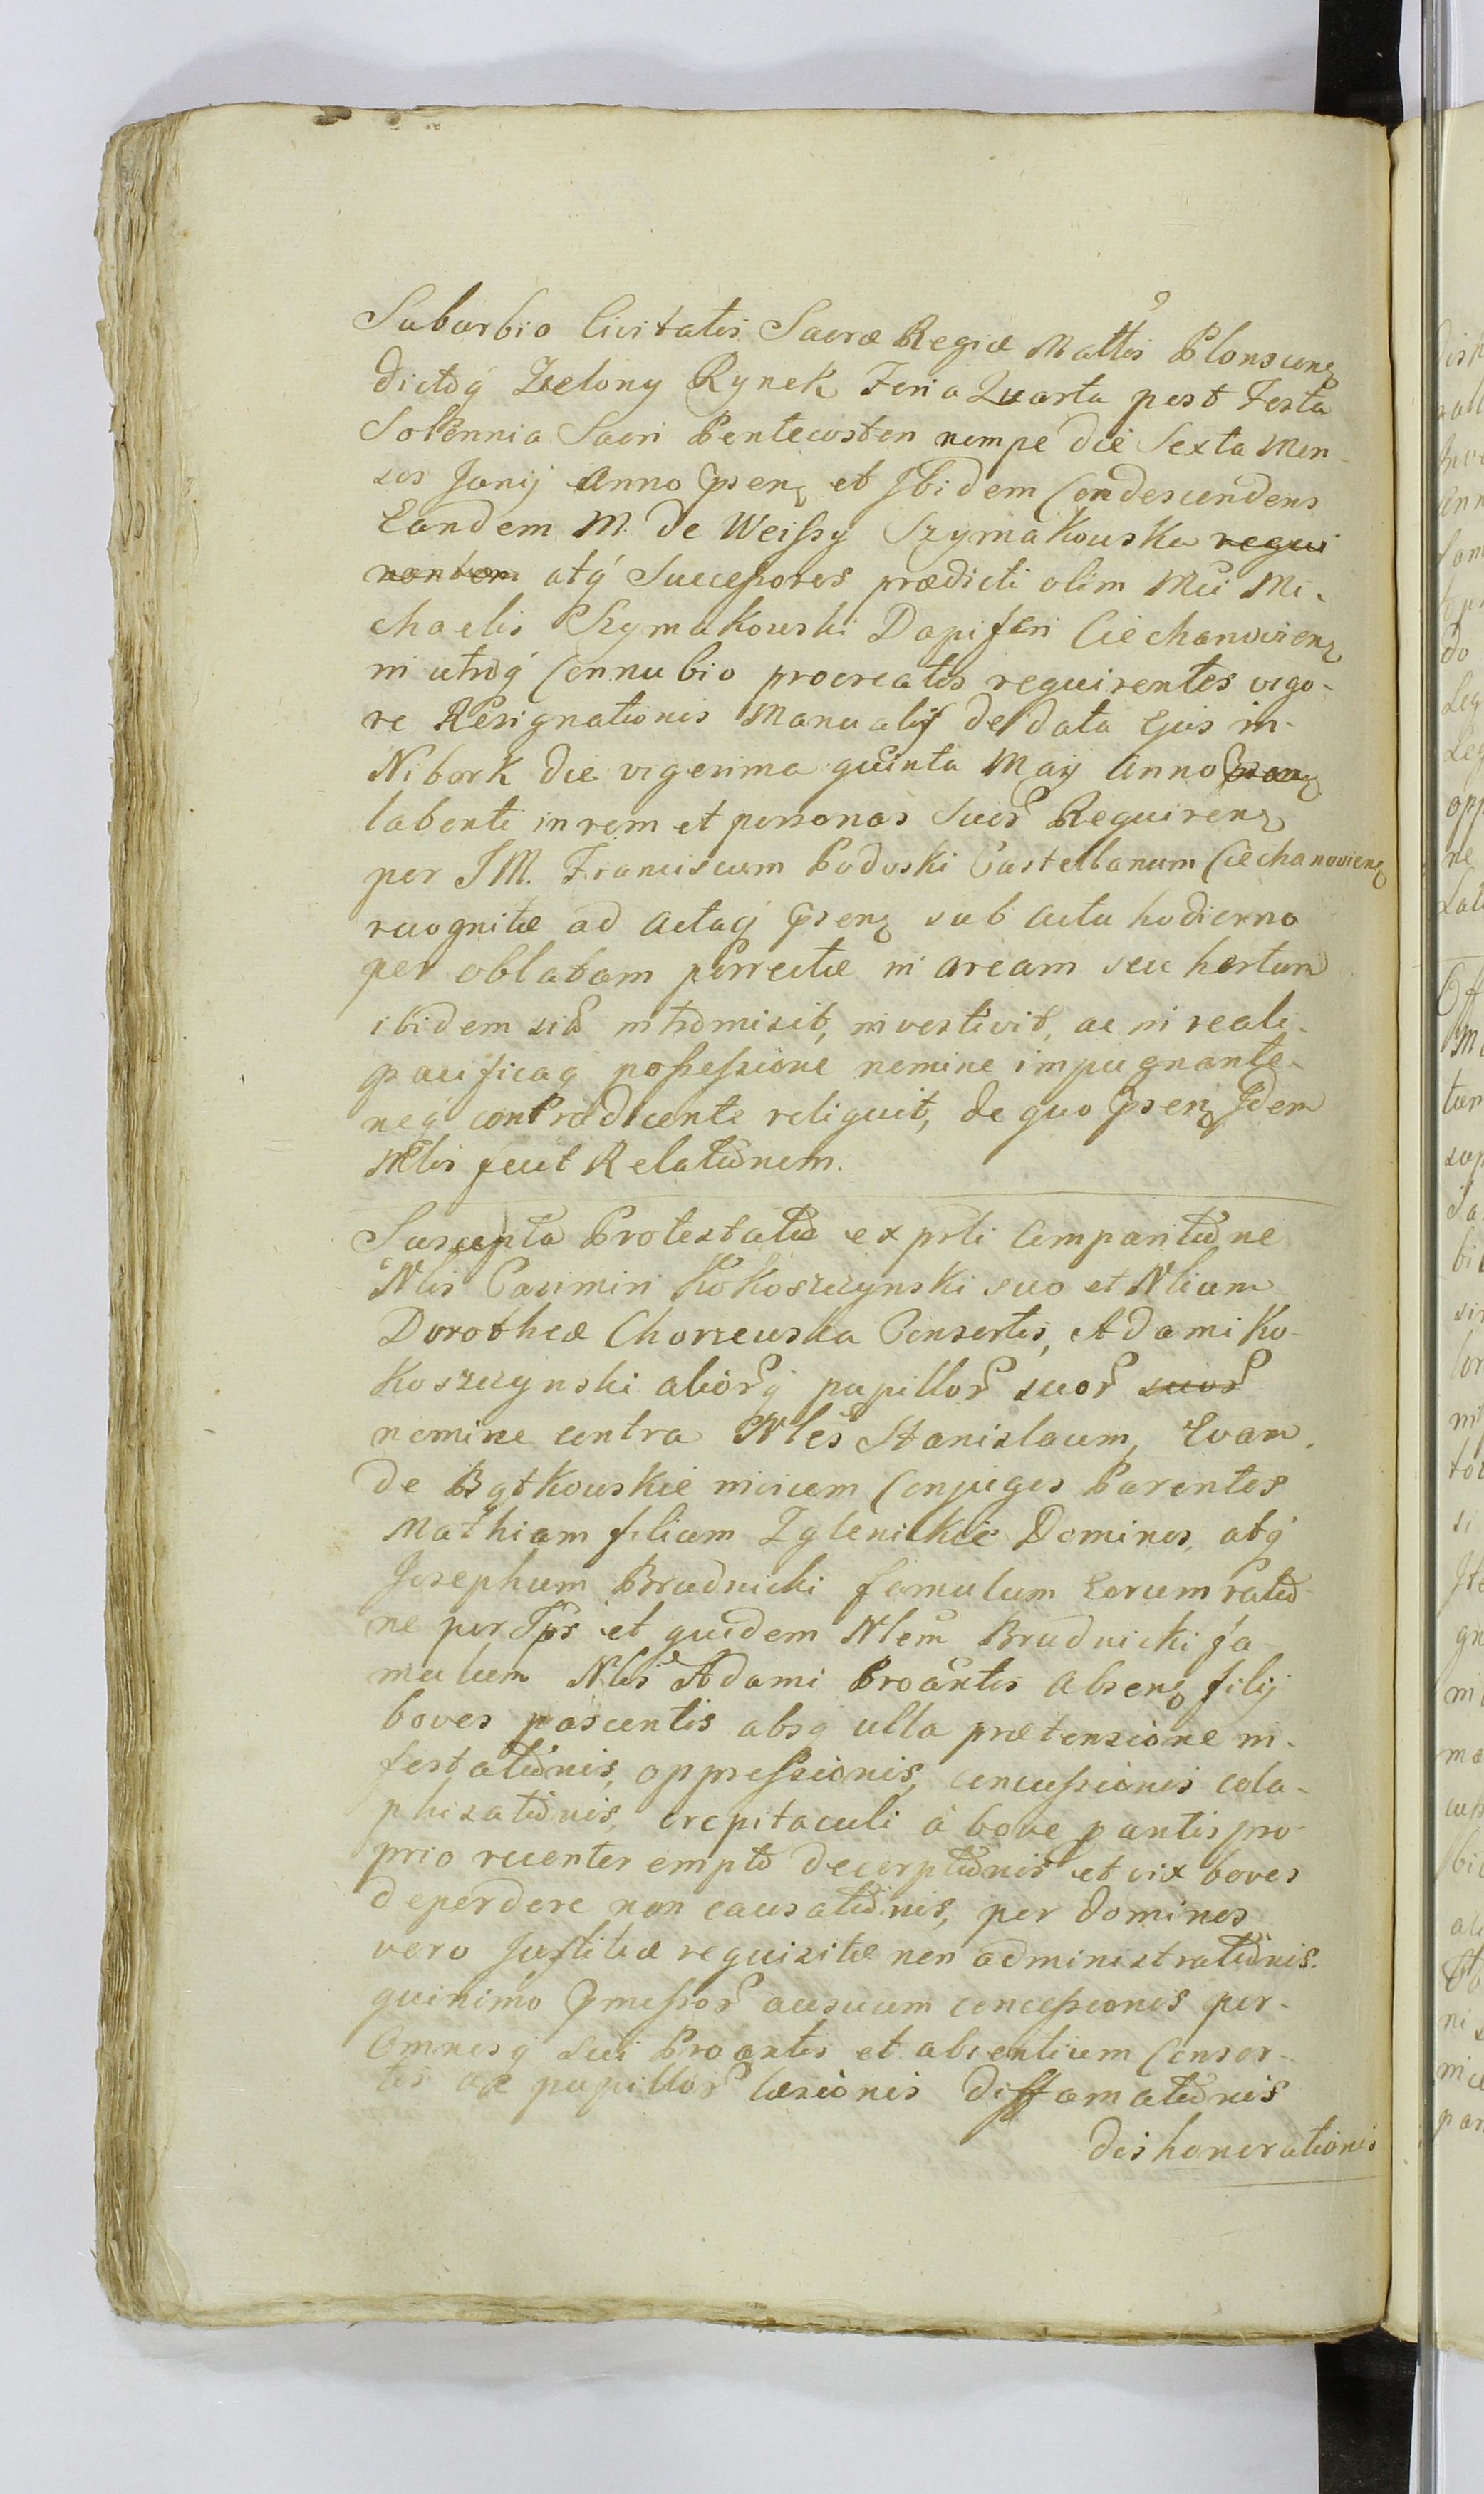 Suburbio Civitatis Sacræ Regiæ Mattis Plonscen
dictoq Zielony Rynek Feria Quarta post Festa
Solennia Sacri Pentecosten nempe die Sexta Men-
sis Junij Anno Prsen et Ibidem Condescendens
Eandem M. de Weissy Szymakowska requi
rentem atq Successores prædicti olim Mci Mi-
chaelis Szymakowski Dapiferi Ciechanovien
in utroq Connubio procreatos requirentes vigo-
re Resignationis Manualis de data Ejus in
Nibork die vigesima quinta Maij Anno prsen
labenti in rem et personas Suor Requiren
per IM. Franciscum Podoski Castellanum Ciechanovien
recognitæ ad Actaq Prsen sub Actu hodierno
per oblatam porrectæ in aream seu hortum
ibidem sitũ intromisit, investivit, ac in reali
pacificaq possessione nemine impugnante
neq contradicente reliquit, de quo Prsen Idem
Mlis fecit Relationem.
Suscepta Protestatio ex prsti Comparitione
Nlis Casimiri Kokoszczynski suo et Nlium
Dorotheæ Chorzewska Consortis, Adami Ko-
koszczynski alior̃q pupillor̃ suor̃ suor̃
nomine contra Nles Stanislaum, Evam
de Bątkowskie invicem Conjuges Parentes
Mathiam filium Zglenickie Dominos, atq
Josephum Brudnicki famulum Eorum ratio-
ne per Ips et quidem Nlem Brudnicki fa-
mulum Nlis Adami Proantis Absen filij
boves pascentis absq ulla prætensione in-
festationis, oppressionis, concussionis cola-
phisationis, crepitaculi à bove pantis pro-
prio recenter empto decerptionis et vix boves
deperdere non causationis, per Dominos
vero Justitiæ requisitæ non administrationis.
quinimo Prmissor̃ ausuum concessionis per-
Omnesq sui Proantis et absentium Consor-
tis ac pupillor̃ læsionis diffamationis
dishonorationis